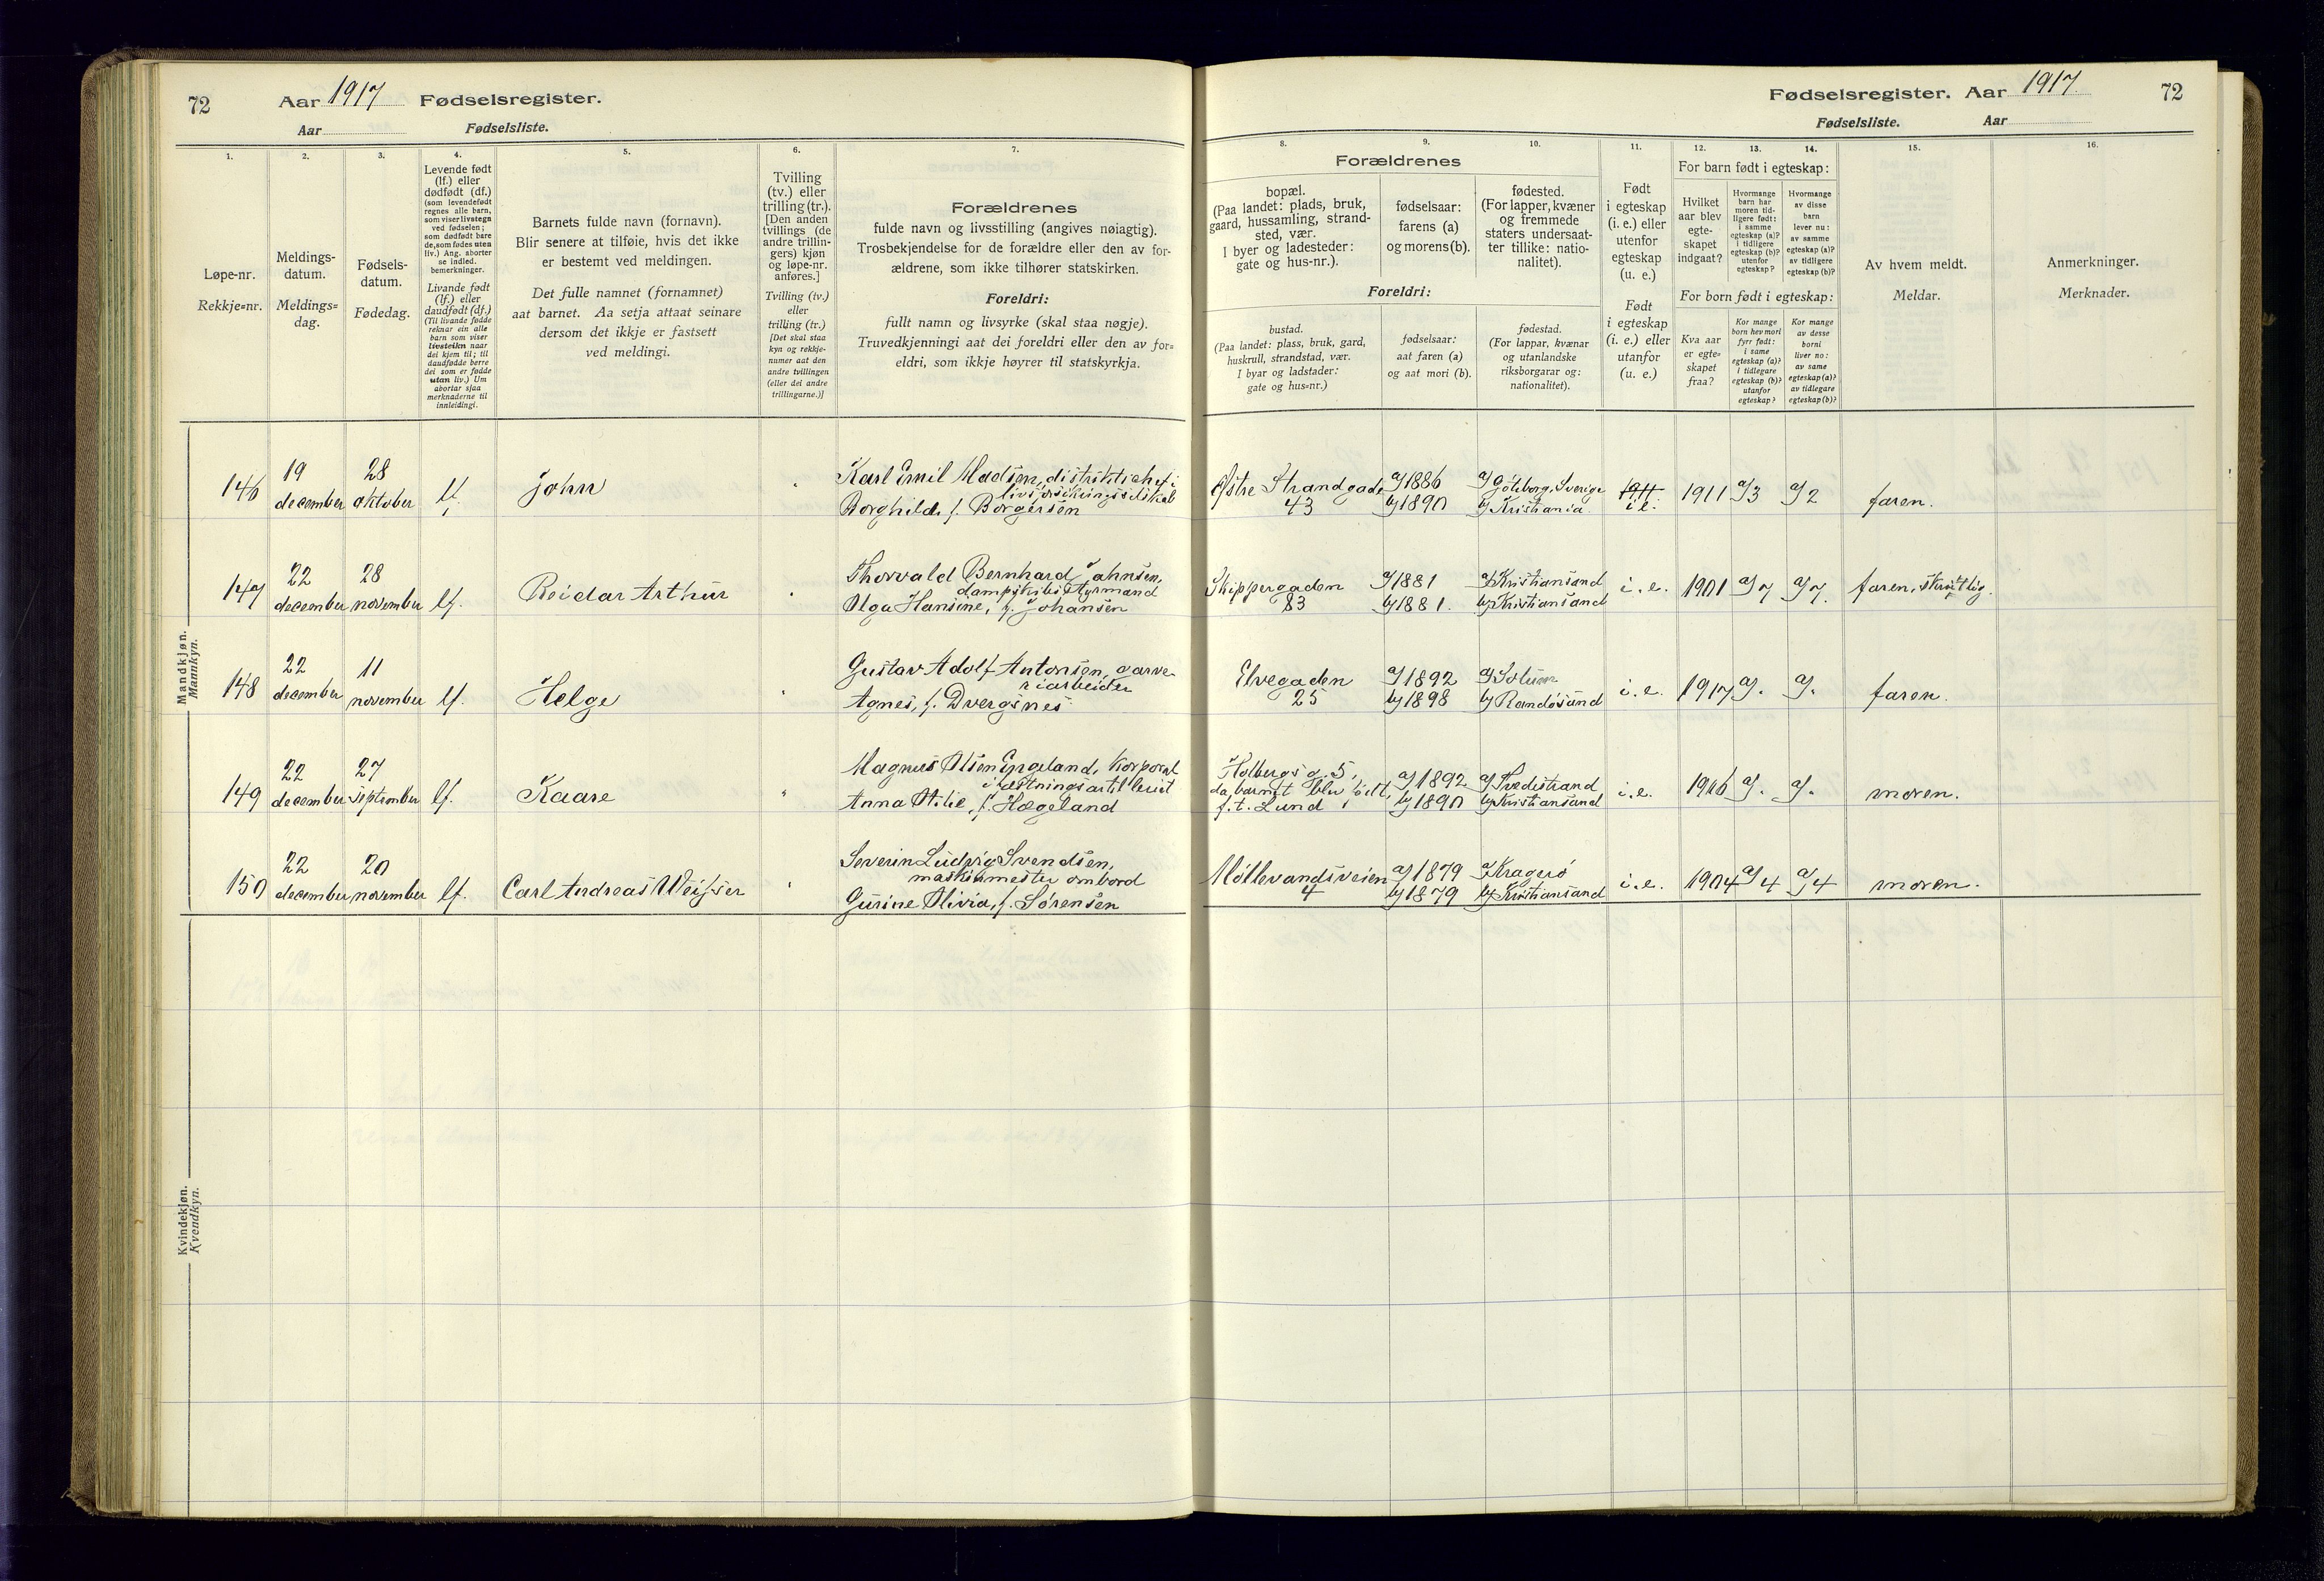 72
Aar 1917 Fødselsregister.
Aar Fødselsliste.
1.
2.
3.
4.
5.
6.
7.
Løpe-nr.
Rekkje=nr.
Meldings-
datum.
Meldings=
dag.
Fødsels-
datum.
Fødedag.
Levende født
(lf.) eller
dødfødt (df.)
(som levendefødt
regnes alle barn,
som viser livstegn
ved fødselen;
som dødfødt bare
de, som fødes uten
liv.) Ang. aborter
se indled.
bemerkninger.
Livande født
(lf.) eller
daudfødt (df.)
(Til livande fødde
reknar ein alle
barn som viser
livsteikn naar
dei kjem til; til
daudfødde berre
dei som er fødde
utan liv.) Um
abortar sjaa
merknaderne til
innleidingi.
Barnets fulde navn (fornavn).
Blir senere at tilføie, hvis det ikke
er bestemt ved meldingen.
Det fulle namnet (fornamnet)
aat barnet. Aa setja attaat seinare
dersom det ikkje er fastsett
ved meldingi.
Tvilling
(tv.) eller
trilling (tr.).
[Den anden
tvillings (de
andre trillin-
gers) kjøn
og løpe-nr.
anføres.]
Tvilling (tv.)
eller
trilling (tr.)
[Det skal staa
kyn og rekkje-
numer aat den
andre tvillingen
(eller dei andre
trillingarne.)]
Forældrenes
fulde navn og livsstilling (angives nøiagtig).
Trosbekjendelse for de forældre eller den av for-
ældrene, som ikke tilhører statskirken.
Foreldri:
fullt namn og livsyrke (skal staa nøgje).
Truvedkjenningi aat dei foreldri eller den av for=
eldri, som ikkje høyrer til statskyrkja.
Mandkjøn.
Mannkyn.
146 19 december 28 oktober lf. John " Karl Emil Madsen, distriktschef i
livsforsikringsselskab
Borghild, f. Borgersen
147 22 december 28 november lf. Reidar Arthur " Thorvald Bernhard Jahnsen,
dampskibsstyrmand
Olga Hansine, f. Johansen
148 22 december 11 november lf. Helge " Gustav Adolf Antonsen, garve-
riarbeider
Agnes, f. Dvergsnes
149 22 december 27 september lf. Kaare " Magnus Olsen Engeland, korporal
i fæstningsartilleriet
Anna Otilie, f. Hægeland
150 22 december 20 november lf. Carl Andreas Weisser " Severin Ludvig Svendsen,
maskinmester ombord
Gurine Olivia, f. Sørensen
Kvindekjøn.
Kvendkyn.
Fødselsregister. Aar 1917.
72
Fødselsliste. Aar
8.
9.
10.
11.
12.
13.
14.
15.
16.
Forældrenes
bopæl.
(Paa landet: plads, bruk,
gaard, hussamling, strand-
sted, vær.
I byer og ladesteder:
gate og hus-nr.).
fødselsaar:
farens (a)
og morens (b).
fødested.
(For lapper, kvæner
og fremmede
staters undersaat-
ter tillike: natio-
nalitet).
Foreldri:
bustad.
(Paa landet: plass, bruk, gard,
huskrull, strandstad, vær.
I byar og ladstader:
gate og hus-nr.)
fødselsaar:
aat faren (a)
og aat mori (b).
fødestad.
(For lappar, kvænar
og utanlandske
riksborgarar og:
nationalitet).
Født
i egteskap
(i. e.) eller
utenfor
egteskap
(u. e.)
Født
i egteskap
(i. e.) eller
utanfor
(u. e.)
For barn født i egteskap:
Hvilket
aar blev
egte-
skapet
indgaat?
Hvormange
barn har
moren tid-
ligere født:
i samme
egteskap (a)?
i tidligere
egteskap (b)?
utenfor
egteskap?
Hvormange
av disse
barn
lever nu:
av samme
egteskap (a)?
av tidligere
egteskap (b)?
For born født i egteskap:
Kva aar
er egte=
skapet
fraa?
Kor mange
born hev mori
fyrr født:
i same
egteskap (a)?
i tidlegare
egteskap (b)?
utanfor
egteskap?
Kor mange
av desse
borni
liver no:
av same
egteskap (a)?
av tidlegare
egteskap (b)?
Av hvem meldt.
Meldar.
Anmerkninger.
Merknader.
Østre Strandgade a) 1886 a) Göteborg, Sverige 1911 1911 a) 3 a) 2 faren.
43 b) 1890 b) Kristiania i. e.
Skippergaden a) 1881 a) Kristiansand i. e. 1901 a) 7 a) 7. faren, skriftlig.
83 b) 1881. b) Kristiansand
Elvegaden a) 1892 a) Solum i. e. 1917 a) - a) - faren.
25 b) 1898 b) Randøsund
Holbergs g. 5,
da barnet blev født, a) 1892 a) Tvedestrand i. e. 1916 a) - a) - moren.
f. t. Lund b) 1890 b) Kristiansand
Møllevandsveien a) 1879 a) Kragerø i. e. 1904 a) 4 a) 4 moren.
4 b) 1879 b) Kristiansand